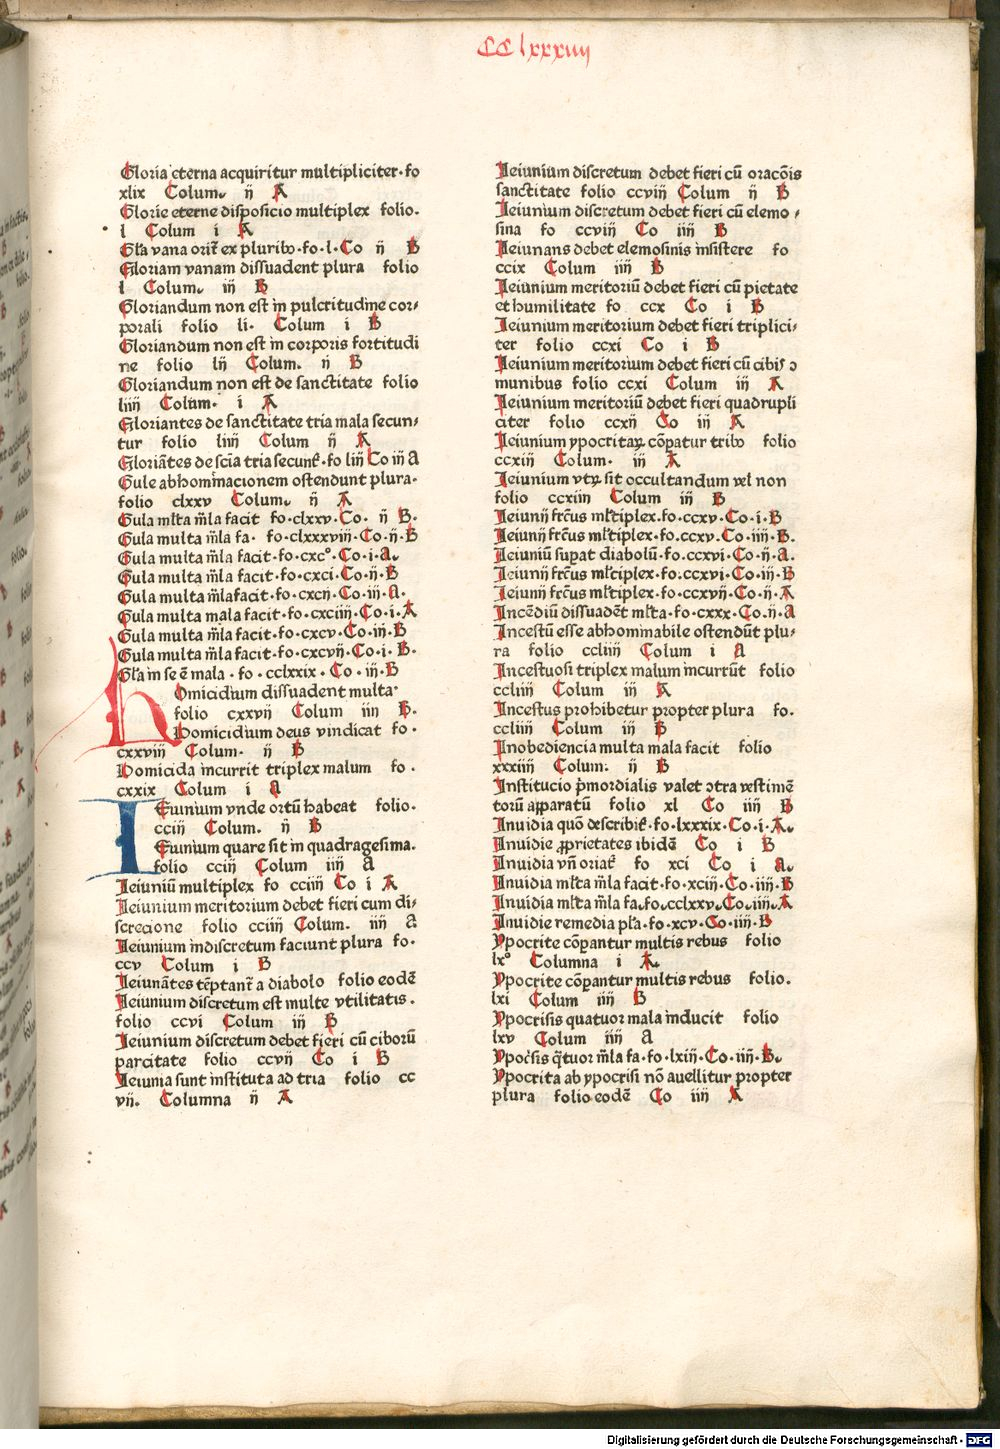 CClxxxiiij
Gloria eterna acquiritur multipliciter·fo
xlix Colum. ij A
Glorie eterne disposicio multiplex folio.
l Colum i A
Gl̄a vana orit̄ ex pluribꝯ·fo·l·Co ij B
Gloriam vanam dissuadent plura folio
l Colum. iij B
Gloriandum non est in pulcritudine cor⸗
porali folio li· Colum i B
Gloriandum non est in corporis fortitudi
ne folio lij Colum. ij B
Gloriandum non est de sanctitate folio
liiij Colum· i A
Gloriantes de sanctitate tria mala secun⸗
tur folio liiij Colum ij A
Gloriātes de scīa tria secunt̄·fo liiij Co iij a
Gule abhominacionem ostendunt plura·
folio clxxv Colum. ij A
Gula ml̄ta m̄la facit fo·clxxv·Co· ij B·
Gula multa m̄la fa· fo·clxxxviij·Co·ij·B
Gula multa m̄la facit·fo·cxcº·Co·i·a.
Gula multa m̄la facit·fo·cxci·Co·ij·B
Gula multa m̄la facit·fo·cxcij·Co·iij·a·
Gula multa mala facit·fo·cxciiij·Co·i·A
Gula multa m̄la facit·fo·cxcv·Co·iij·B
Gula multa m̄la facit·fo·cxcvij·Co·i·B·
Gl̄a in se ē mala·fo·cclxxix·Co·iij·B
Homicidium dissuadent multa·
folio cxxvij Colum iiij B·
Homicidium deus vindicat fo·
cxxviij Colum· ij B
Homicida incurrit triplex malum fo·
cxxix Colum i a
Ieiunium vnde ortū habeat folio·
cciij Colum. ij B
Ieiunium quare sit in quadragesima.
folio cciij Colum iiij a
Ieiuniū multiplex fo cciiij Co i A
Ieiunium meritorium debet fieri cum di⸗
screcione folio cciiij Colum. iiij a
Ieiunium indiscretum faciunt plura fo·
ccv Colum i B
Ieiunātes tēptant̄ a diabolo folio eodē
Ieiunium discretum est multe vtilitatis.
folio ccvi Colum iij B
Ieiunium discretum debet fieri cū ciborū
parcitate folio ccvij Co i B
Ieiunia sunt instituta ad tria folio cc
vij. Columna ij A
Ieiunium discretum debet fieri cū oracōis
sanctitate folio ccviij Colum ij B
Ieiunium discretum debet fieri cū elemo⸗
sina fo ccviij Co iij B
Ieiunans debet elemosinis insistere fo
ccix Colum iiij B
Ieiunium meritoriū debet fieri cū pietate
et humilitate fo ccx Co i B
Ieiunium meritorium debet fieri triplici⸗
ter folio ccxi Co i B
Ieiunium meritorium debet fieri cū cibis ɔ
munibus folio ccxi Colum iij A
Ieiunium meritoriū debet fieri quadrupli
citer folio ccxij Co iij A
Ieiunium ypocritaꝝ cōpatur tribꝯ folio
ccxiij Colum· iij A
Ieiunium vtꝝ sit occultandum vel non
folio ccxiiij Colum iij B
Ieiunij frc̄us ml̄tiplex·fo·ccxv·Co·i·B
Ieiunij frc̄us ml̄tiplex·fo·ccxv·Co·iiij·B·
Ieiuniū supat diabolū·fo·ccxvi·Co·ij·a.
Ieiunij frc̄us ml̄tiplex·fo·ccxvi·Co·iij·B
Ieiunij frc̄us ml̄tiplex·fo·ccxvij·Co·ij·A
Incēdiū dissuadēt ml̄ta·fo·cxxx·Co·ij·a
Incestū esse abhominabile ostendūt plu⸗
ra folio ccliiij Colum i a
Incestuosi triplex malum incurrūt folio
ccliiij Colum iij A
Incestus prohibetur propter plura fo.
ccliiij Colum iij B
Inobediencia multa mala facit folio
xxxiiij Colum· ij B
Institucio p̄mordialis valet ɔtra vestimē
torū apparatū folio xl Co iiij B
Inuidia quō describit̄·fo·lxxxix·Co·i·A.
Inuidie ꝓprietates ibidē Co i B
Inuidia vn̄ oriat̄ fo xci Co i a.
Inuidia ml̄ta m̄la facit·fo·xciij·Co·iiij·B
Inuidia ml̄ta m̄la fa·fo·cclxxv·Co·iiij·A
Inuidie remedia pl̄a·fo·xcv·Co·iiij·B
Ypocrite cōpantur multis rebus folio
lxº Columna i A.
Ypocrite cōpantur multis rebus folio.
lxi Colum iiij B
Ypocrisis quatuor mala inducit folio
lxv Colum iiij a
Ypoc̄sis q̄tuor m̄la fa·fo·lxiij·Co·iiij·B.
Ypocrita ab ypocrisi nō auellitur propter
plura folio eodē Co iiij A
Digitalisierung gefördert durch die Deutsche Forschungsgemeinschaft - DFG